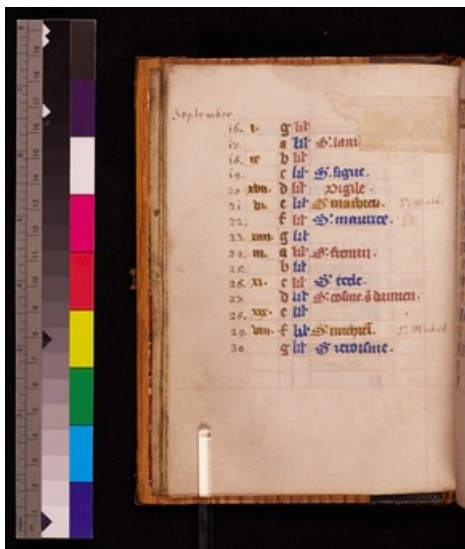 September
16. g kł
17. a kł S. lam
18. b kł
19. c kł S. signe.
20 xvii. d kł Vigile.
21 vi. e kł S. mathieu
22. f kł S. maurice.
23. xiiii. g kł
24. iii. a kł S. fremin.
25. b kł
26. xi. c kł S. tecle.
27. d kł S. cosme. S damien.
28. xix. e kł
29. viii. f kł S. michiel. St Michael
30 g kł S. ieroisme.